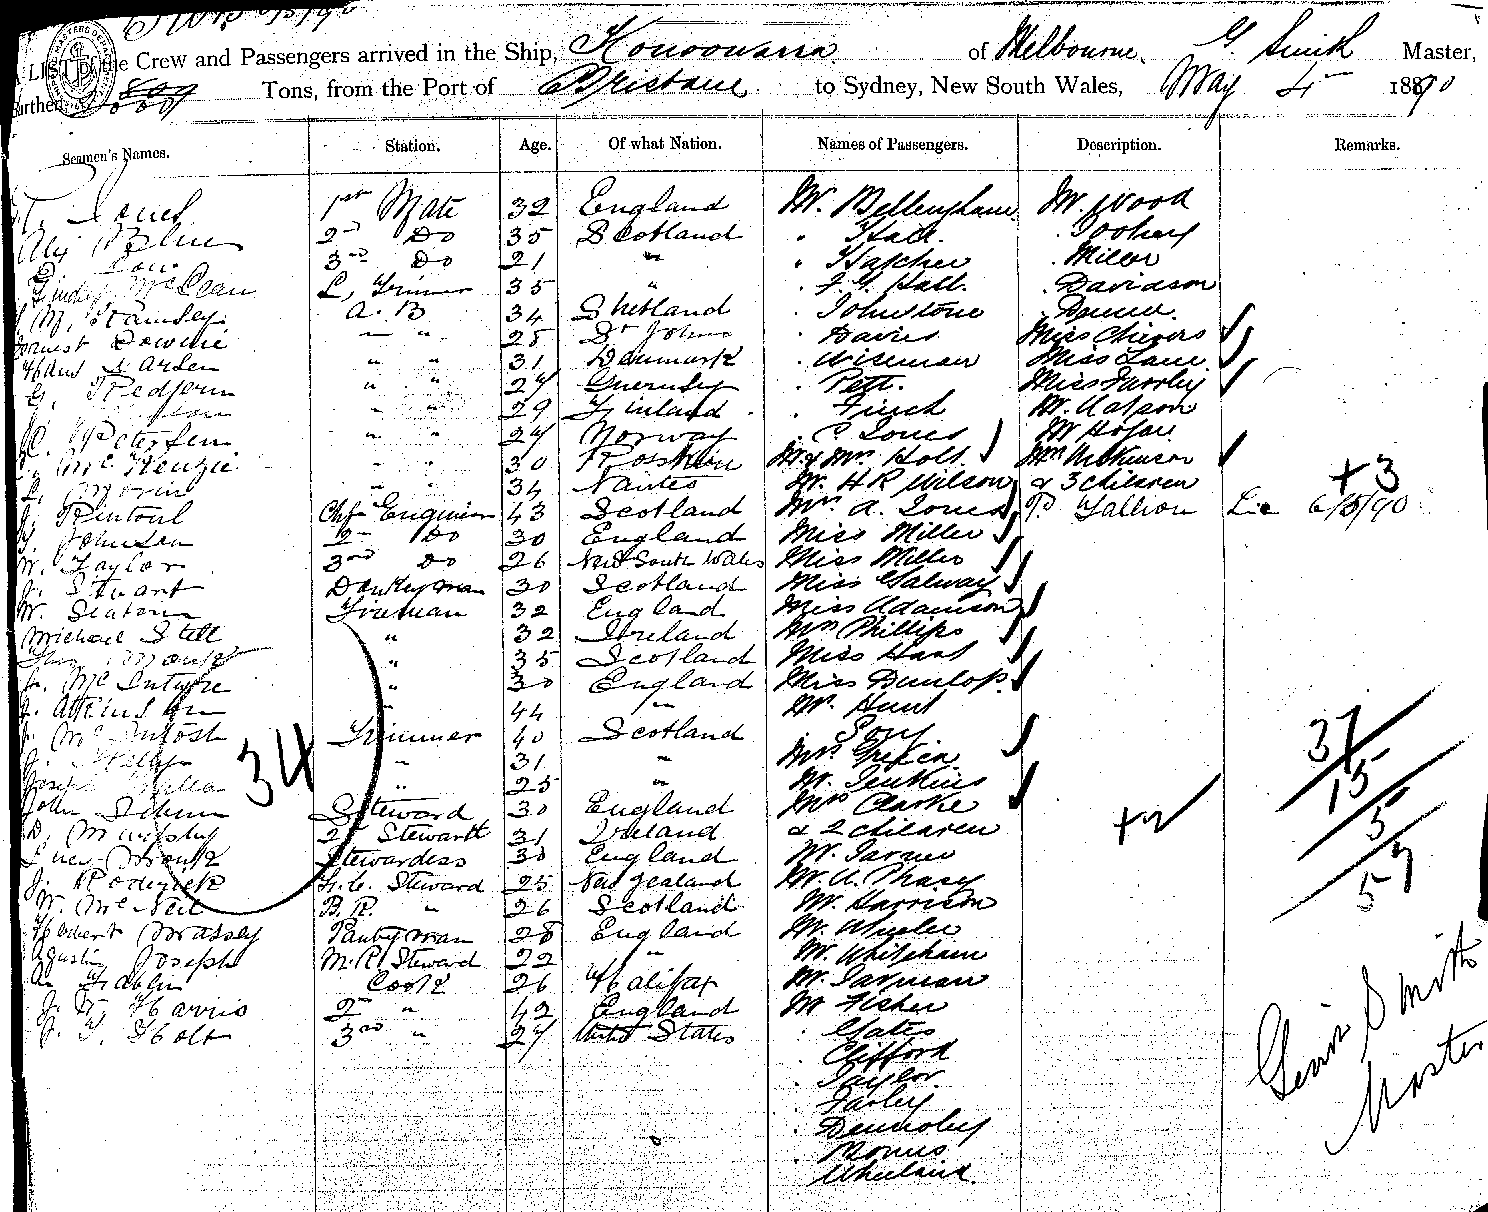 A LIST of the Crew and Passengers arrived in the Ship, Konoowarra of Melbourne, G. Smith Master,
Burthen 809 Tons, from the Port of Brisbane to Sydney, New South Wales, May 4th 1890
Seamen's Names. Station. Age. Of what Nation. Names of Passengers. Description. Remarks.
Jones 1st Mate 32 England Mr. Bellingham Mr. Wood
Alex 2nd Do 35 Scotland . Hall. . Toohey
3rd Do 21 " . Hatcher . Miller
Lindsy McLean L, Trimmer 35 " . J. G. Hall. . Davidson
Wm. Ramsey A. B 34 Shetland . Johnstone . Dunn.
Ernest Downie " " 25 St Johns . Davies Miss Chivers
Hans Larsen " " 31 Denmark . Wiseman Miss Lane
G. Redfern " " 27 Guernsey . Pett. Miss Farley
" " 29 Finland . Finch Mr. Watson
C. Petersen " " 27 Norway . C Jones Mr Hogan
McKenzie " " 30 Rosskeen Mr & Mrs Holt. Mrs Wilkinson
L. Morin " " 34 Nantes Mr. H R Wilson & 3 children +3
J. Rintoul Chf Engineer 43 Scotland Mrs. A. Jones P Lallion Lic 6/5/90
J. Johnson 2nd Do 30 England Miss Miller
W. Taylor 3rd Do 26 New South Wales Miss Miller
J. Stuart Donkeyman 30 Scotland Miss Galway
W. Seaton Fireman 32 England Miss Adamson
Michael Stell " 32 Ireland Mrs Phillips
" 35 Scotland Miss Hart
J. McIntyre " 30 England Miss Dunlop
J. Atkinson " 44 " Mr. Hunt
J. McIntosh Trimmer 40 Scotland . Pony 37
J. Kelly " 31 " Mrs. Griffin
Joseph " 25 " Mr. Jenkins 15
John 34 Steward 30 England Mrs Clarke
D. Murphy 2nd Steward 31 Ireland & 2 children +2 5
Stewardess 30 England Mr. Turner
J. Roderick F.C. Steward 25 New Zealand Mr. A. Phasey 57
W. McNeil B. R. " 26 Scotland Mr. Harrison
Herbert Massey Pantryman 28 England Mr. Wheeler
Agustin Joseph M. R. Steward 22 " Mr. Whitcham
A. Cook 26 Halifax Mr. Jarman
J. W. Harris 2nd " 42 England Mr Fisher
J. T. Holt 3rd " 27 United States . Gates
. Clifford
. Taylor
. Farley
. Dennohy
. Morris
. Wheeland.
George Smith
Master